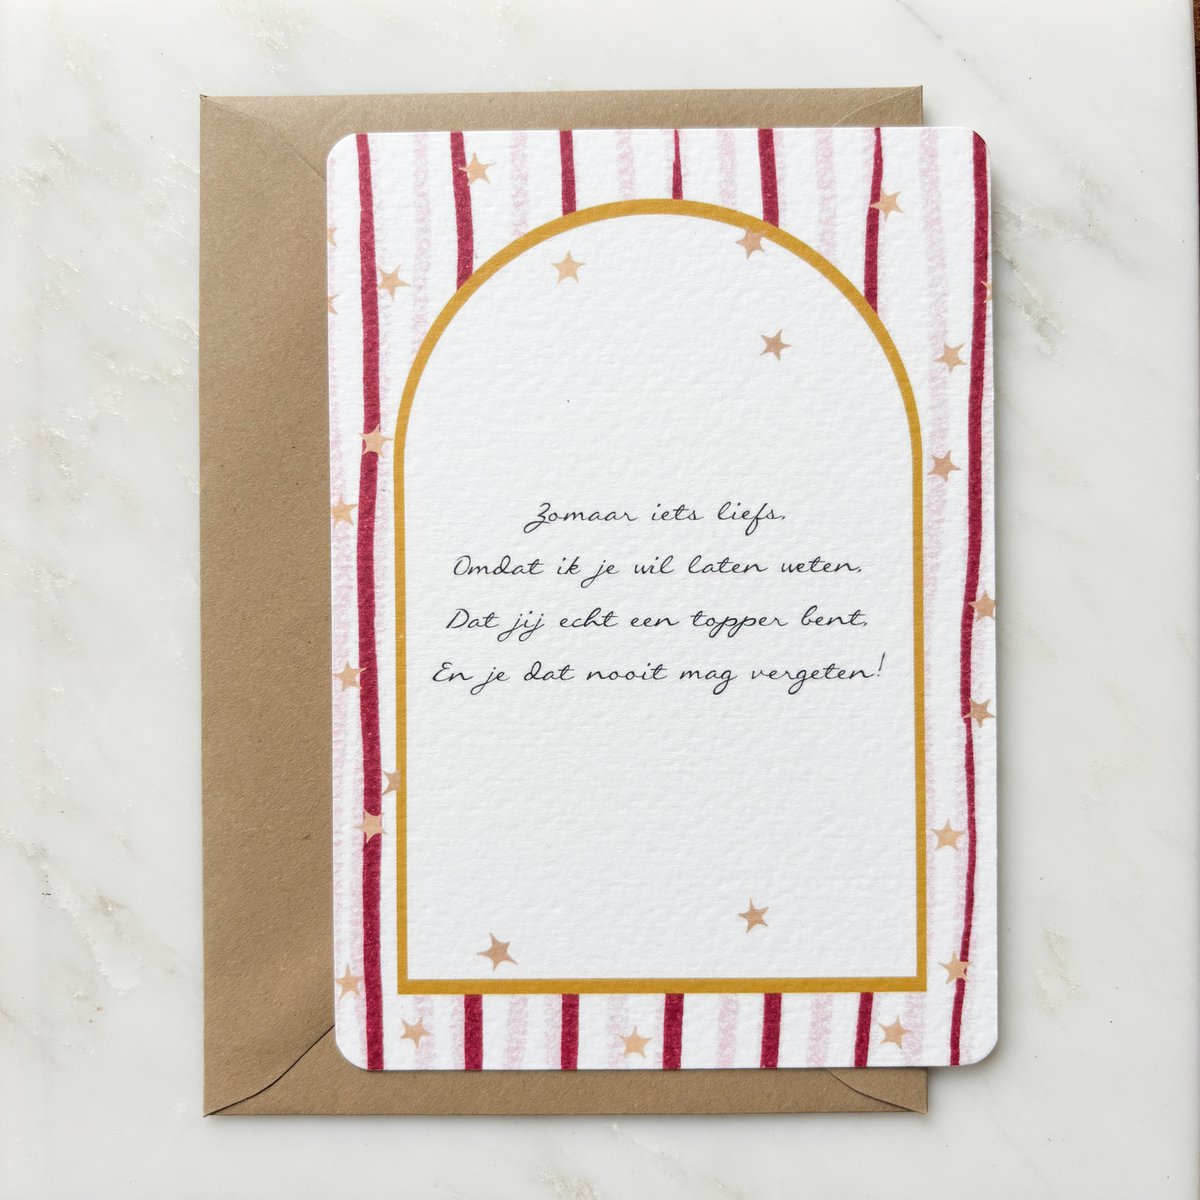 Zomaar iets liefs,
Omdat ik je wil laten weten,
Dat jij echt een topper bent,
En je dat nooit mag vergeten!